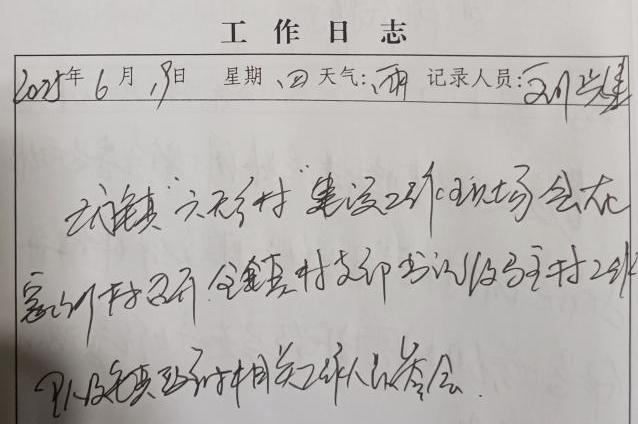 工作日志
2025年6月19日 星期四 天气:雨 记录人员:刘兴
镇"六无村"建设工作现场会在
村召开,全镇村支部书记及驻村工作
队及镇 相关工作人员参会.